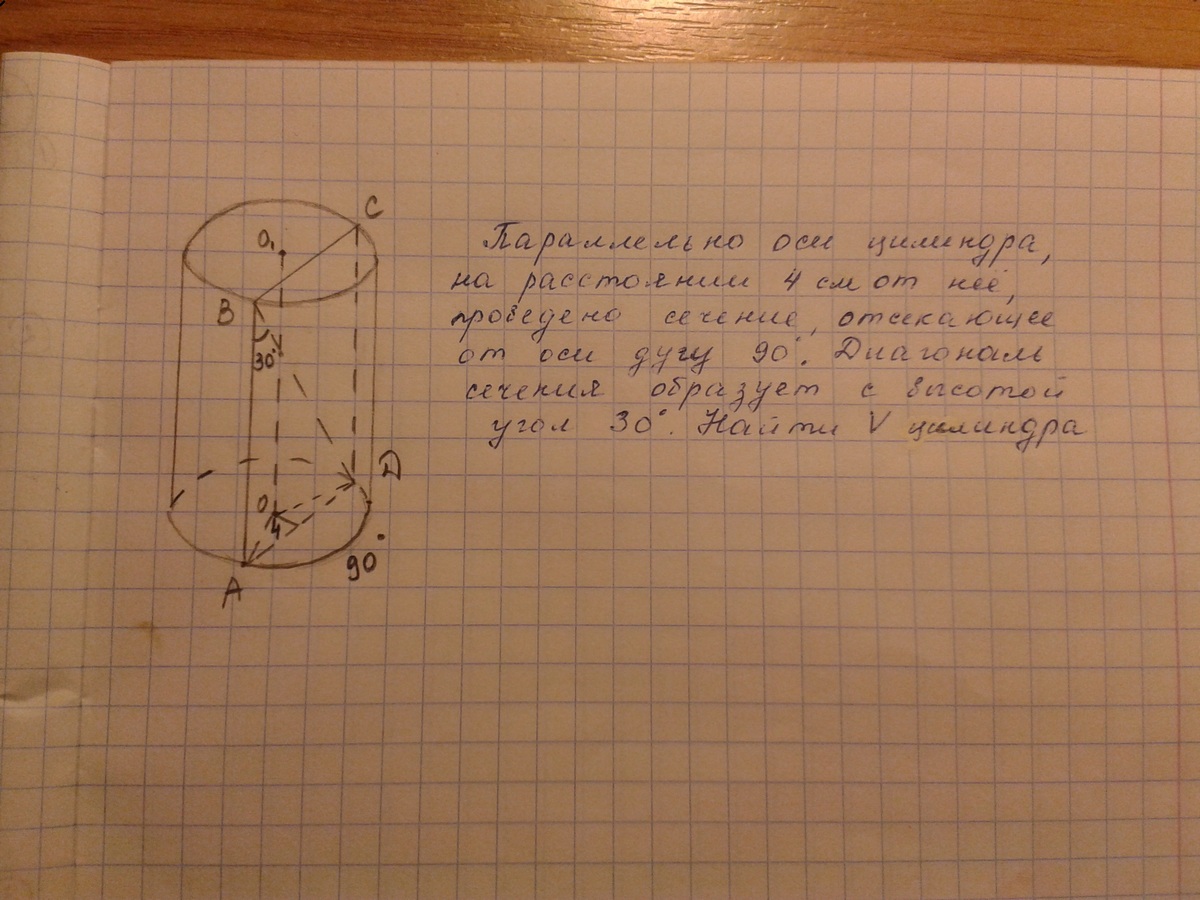 C
O₁
B
30°
D
O
4
90°
A
Параллельно оси цилиндра,
на расстоянии 4 см от неё,
проведено сечение, отсекающее
от оси дугу 90°. Диагональ
сечения образует с высотой
угол 30°. Найти V цилиндра